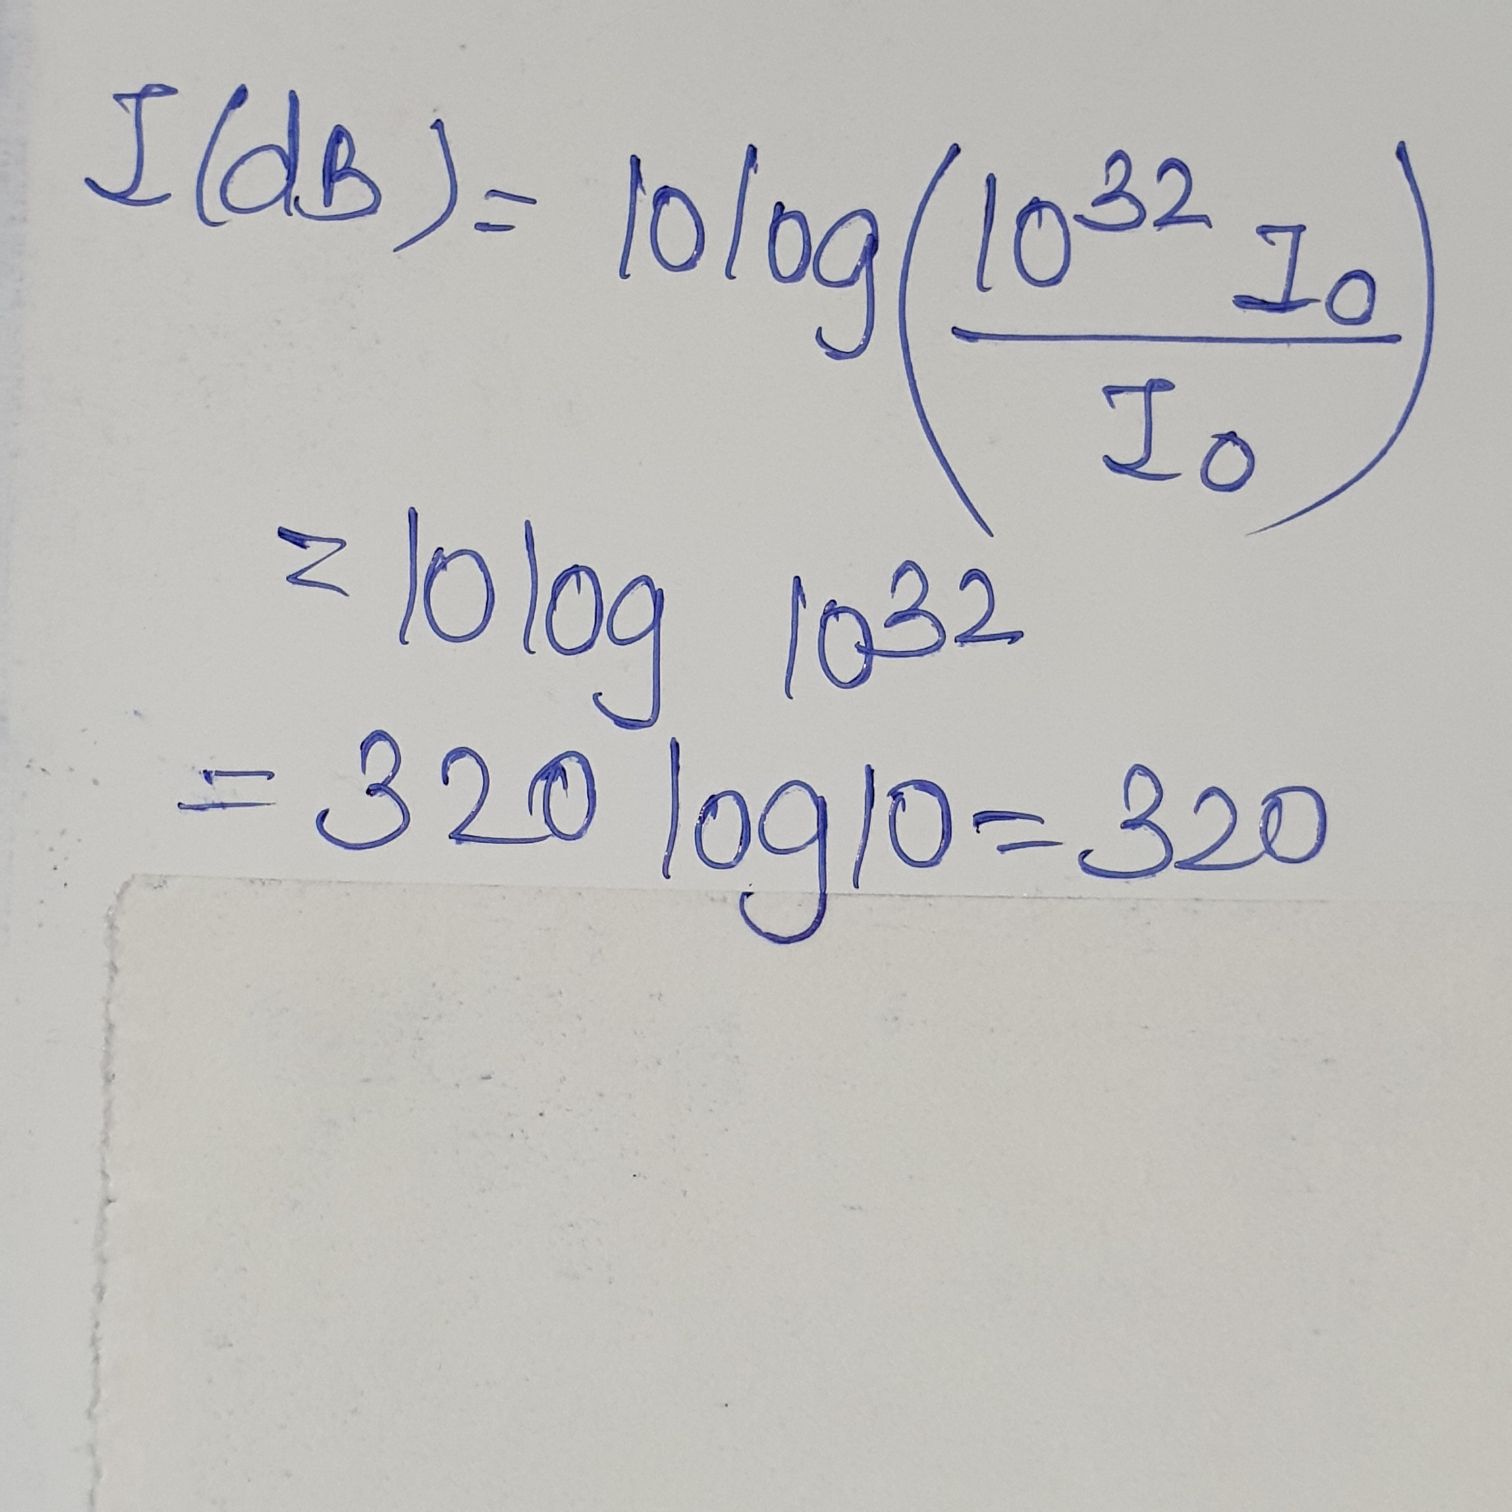 I(dB) = 10 log(10³² I₀ / I₀)
= 10 log 10³²
= 320 log 10 = 320